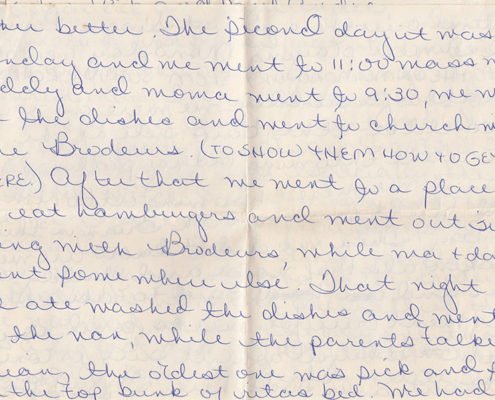 her better. The second day it was
nday and we went to 11:00 mass
ddy and moma went to 9:30, we
the dishes and went to church
e Brodeurs. (TO SHOW THEM HOW TO GE
ERE.) After that we went to a place
eat hamburgers and went out
ing with Brodeurs, while ma + da
nt somewhere else. That night
ate washed the dishes and went
the van, while the parents talke
ean, the oldest one was sick and
the top bunk of ritas bed. We had